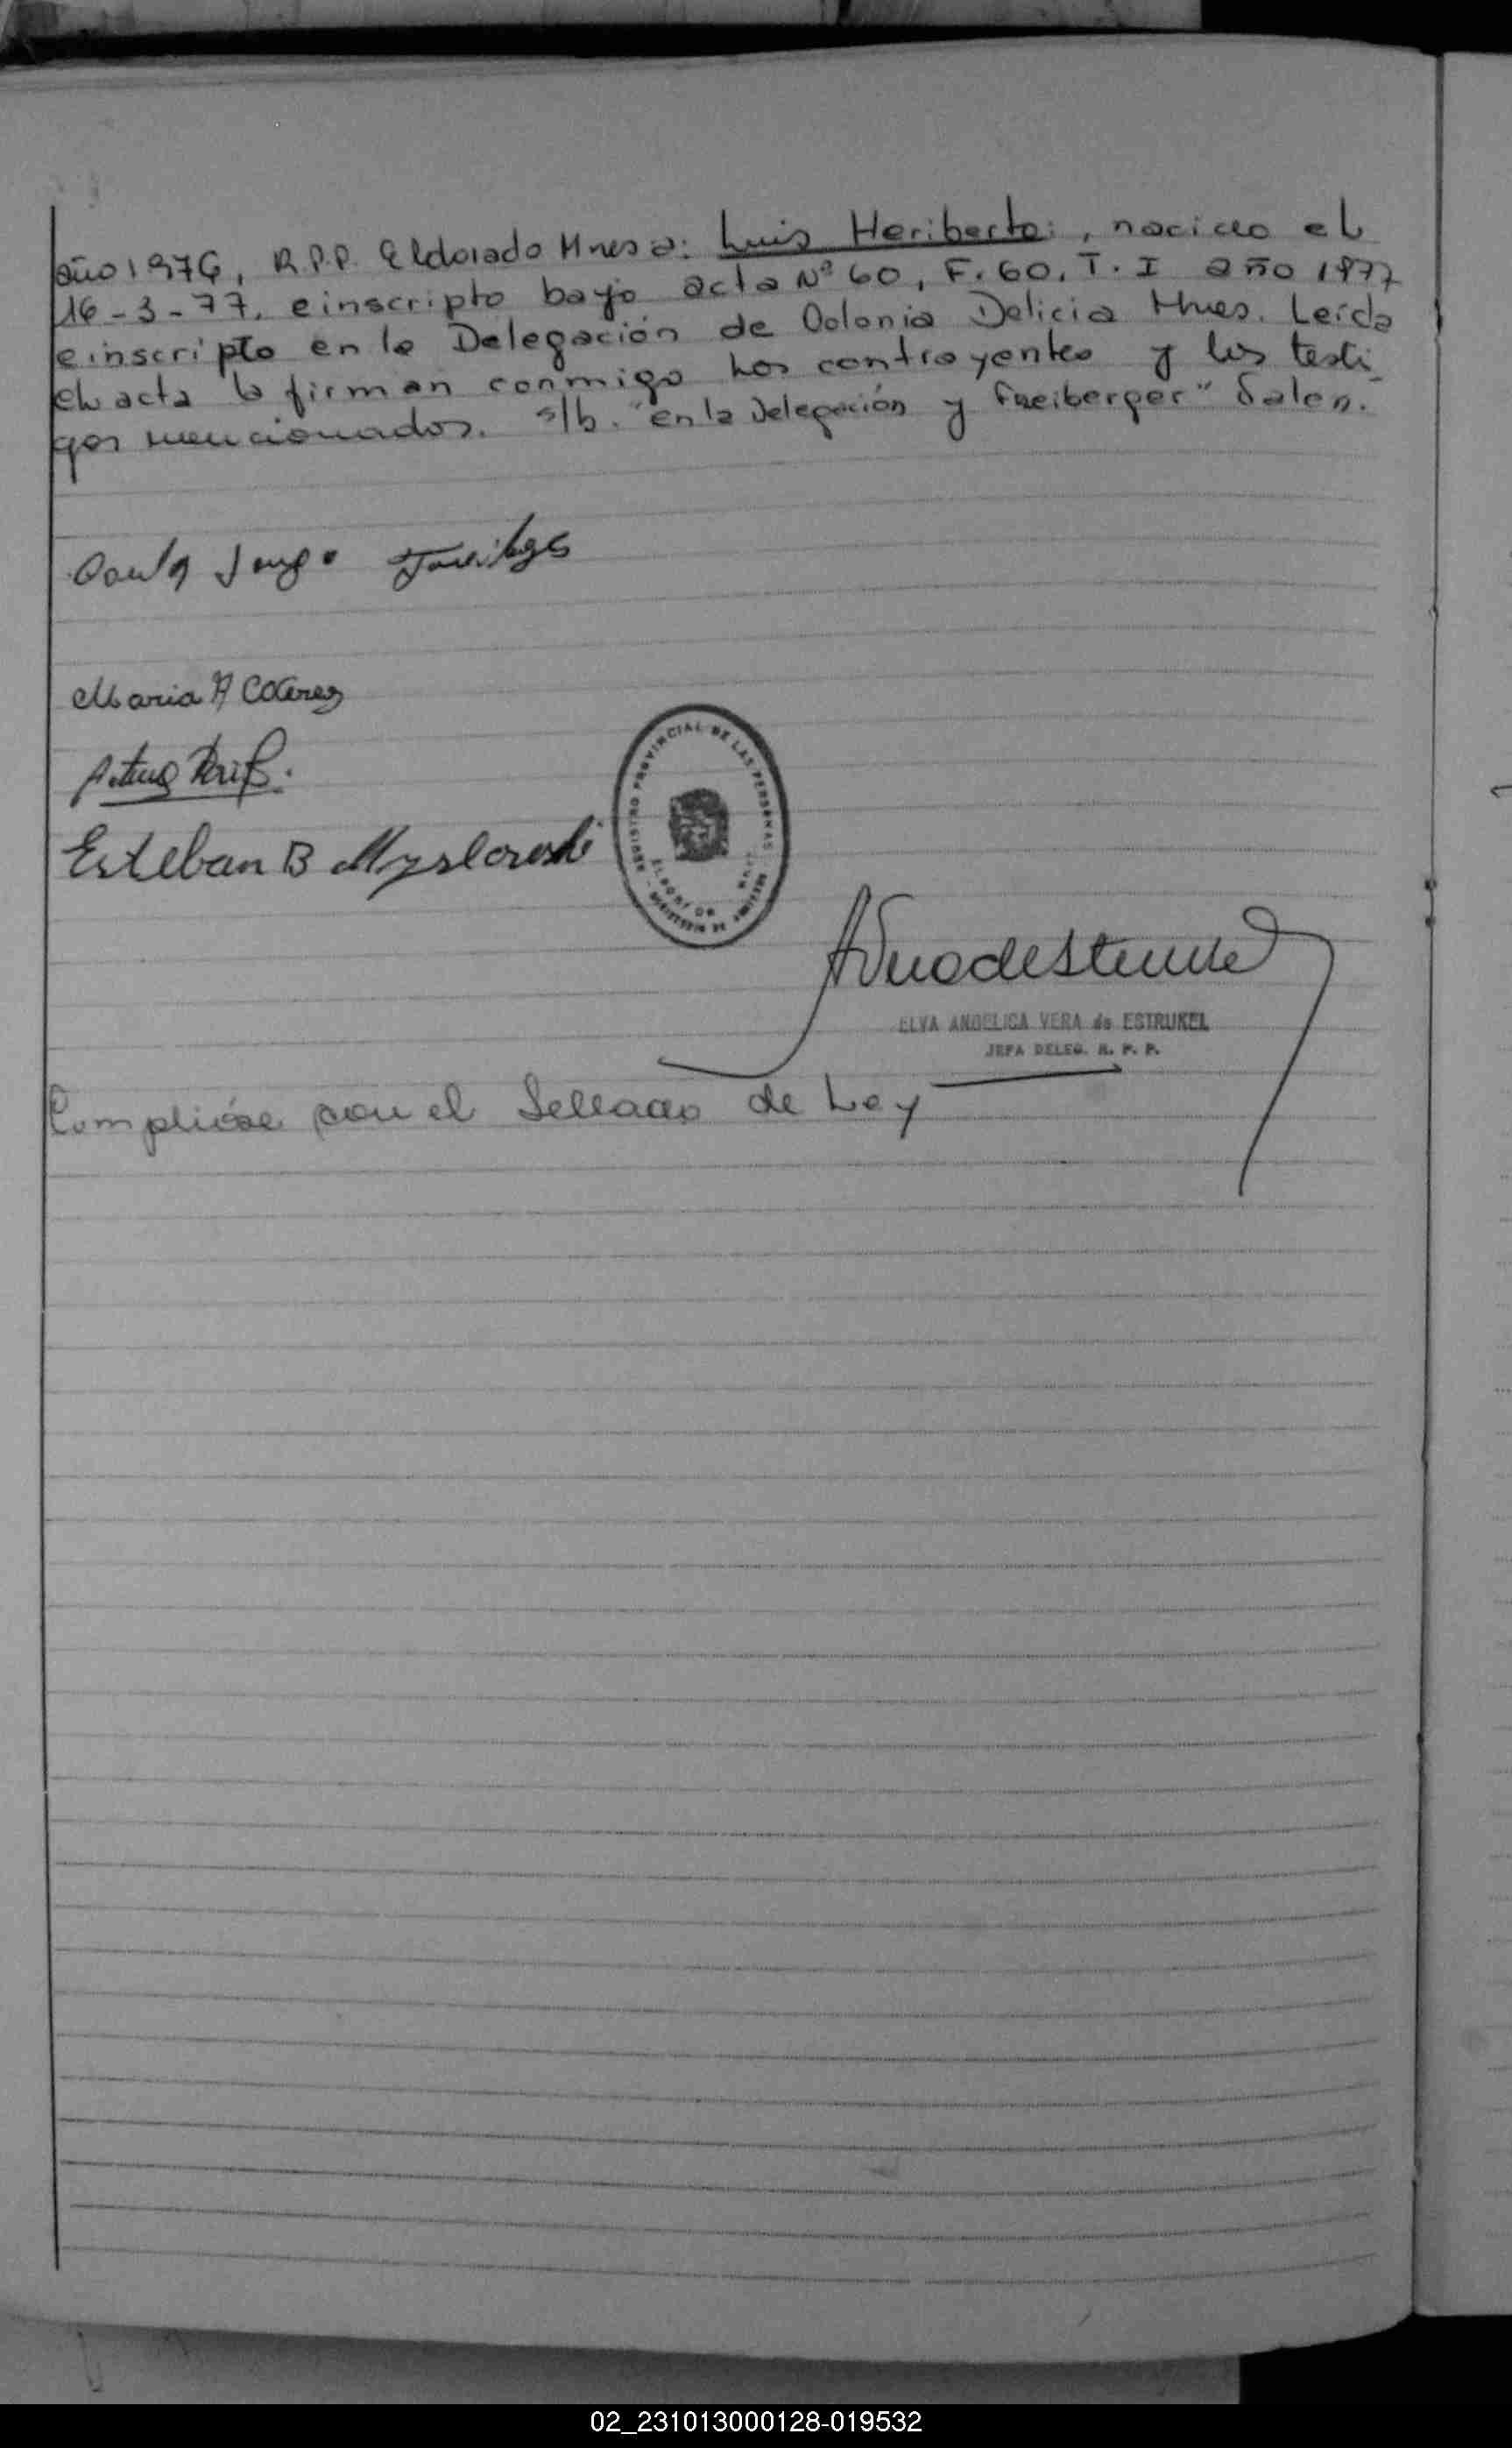 año 1976, R.P.P. Eldorado Mnes a: Luis Heriberto:, nacido el
16-3-77. e inscripto bajo acta Nº 60, F. 60. T. I año 1977
e inscripto en la Delegación de Colonia Delicia Mnes. Leída
el acta la firman conmigo los contrayentes y los testi
gos mencionados. s/b. "en la Delegación y Freiberger" Valen.
Maria A
Esteban B
REGISTRO PROVINCIAL DE LAS PERSONAS
MINISTERIO DE
ELVA ANGELICA VERA de ESTRUKEL
JEFA DELEG. R. P. P.
Complióse con el Sellado de Ley
02_231013000128-019532